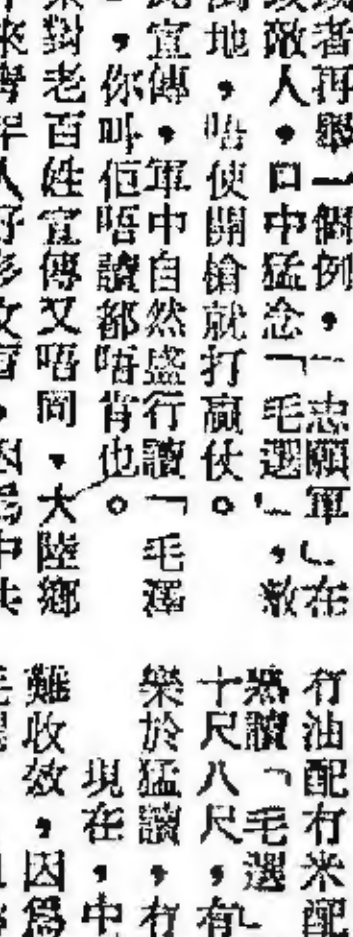 者再舉一個例,「志願軍」在
敵人,口中猛念「毛選」,敵
地,唔使開槍就打贏仗。
宣傳,軍中自然盛行讀「毛澤
,你叫佢唔讀都唔肯也。
對老百姓宣傳又唔同,大陸鄉
冇油配冇米配
熟讀「毛選」
十尺八尺,有
樂於猛讀,冇
現在,中
難收效,因爲